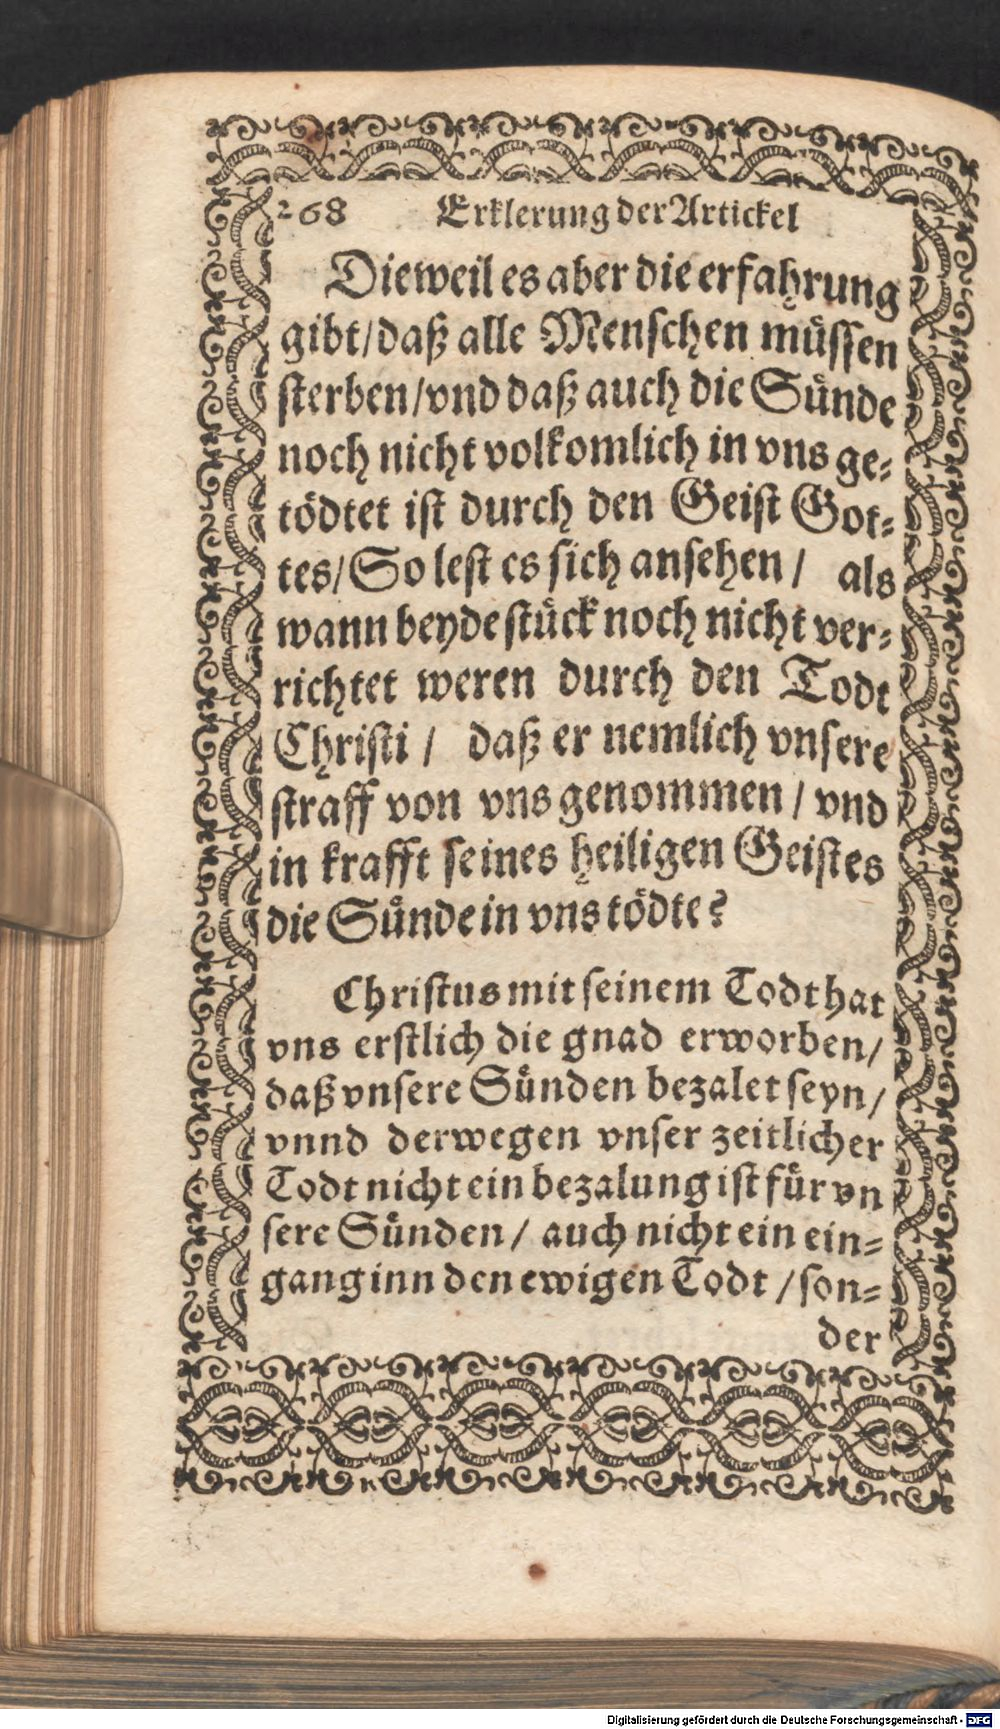 268 Erklerung der Artickel
Dieweil es aber die erfahrung
gibt/ daß alle Menschen müssen
sterben/ vnd daß auch die Sünde
noch nicht volkomlich in vns ge-
tödtet ist durch den Geist Got-
tes/ So lest es sich ansehen/ als
wann beyde stück noch nicht ver-
richtet weren durch den Todt
Christi/ daß er nemlich vnsere
straff von vns genommen/ vnd
in krafft seines heiligen Geistes
die Sünde in vns tödte?
Christus mit seinem Todt hat
vns erstlich die gnad erworben/
daß vnsere Sünden bezalet seyn/
vnnd derwegen vnser zeitlicher
Todt nicht ein bezalung ist für vn
sere Sünden/ auch nicht ein ein-
gang inn den ewigen Todt/ son-
der
Digitalisierung gefördert durch die Deutsche Forschungsgemeinschaft - DFG